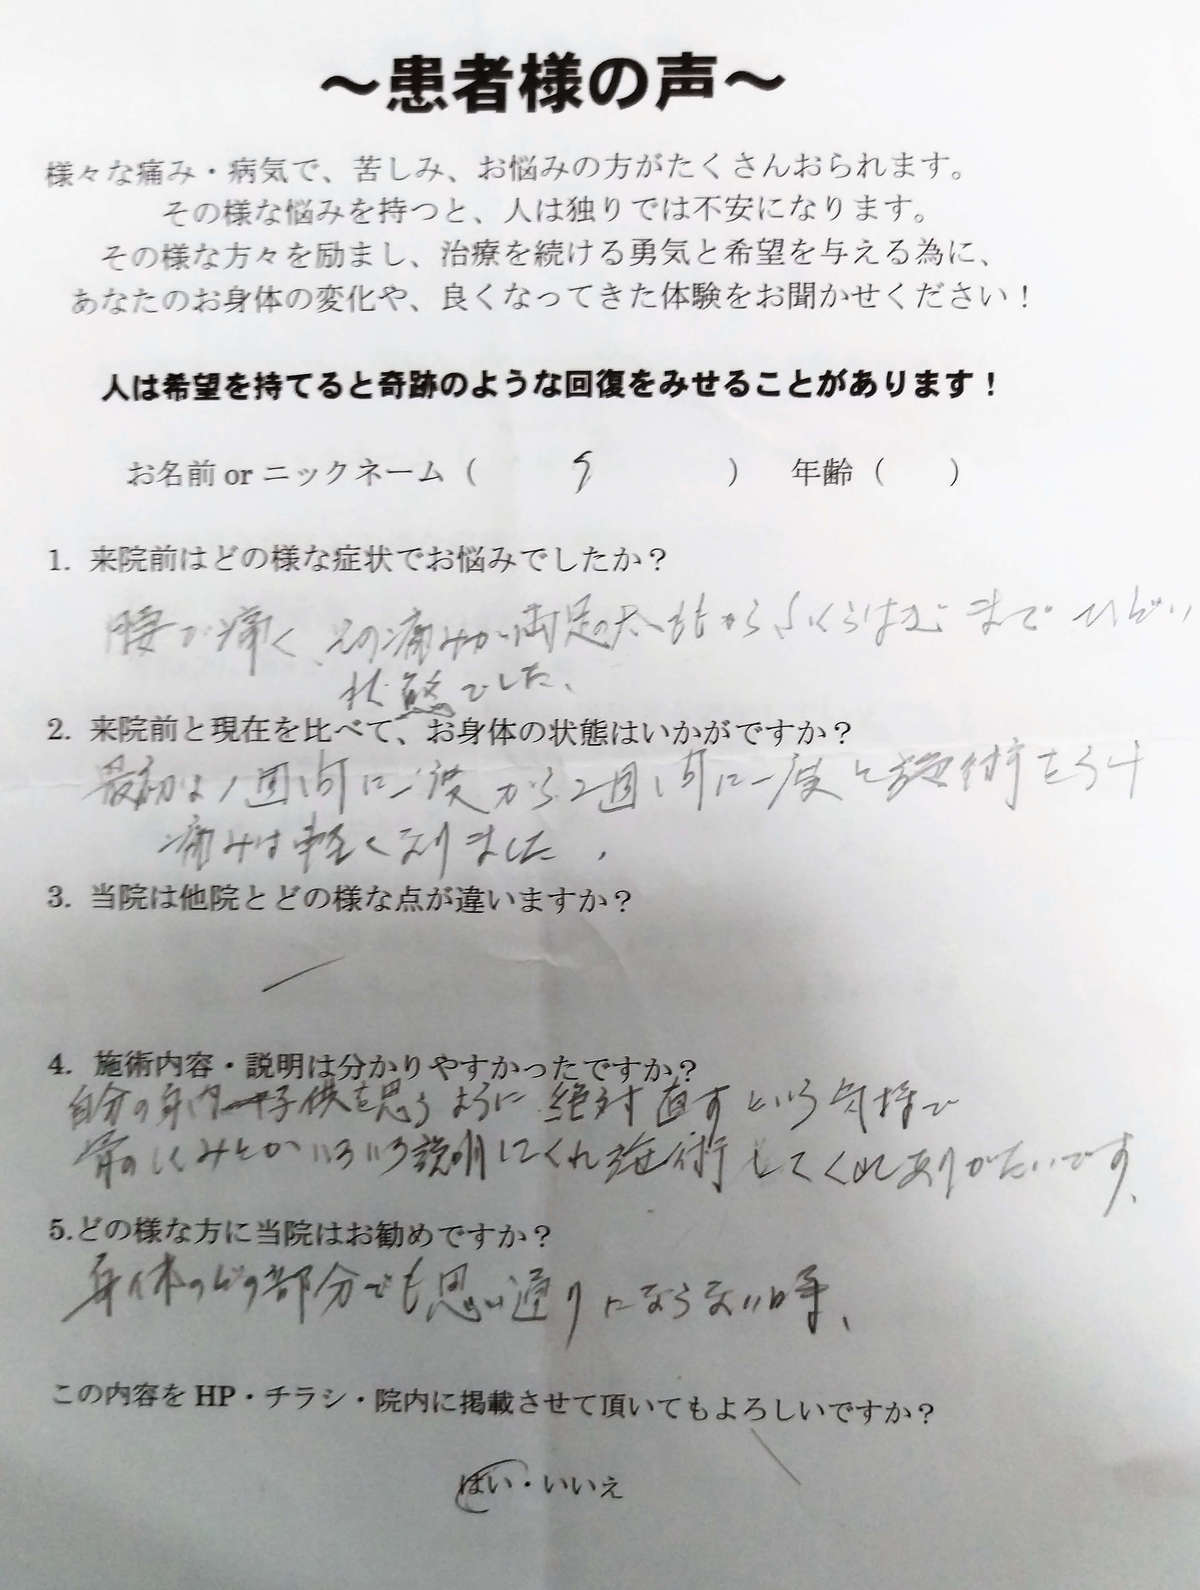 ～患者様の声～
様々な痛み・病気で、苦しみ、お悩みの方がたくさんおられます。
その様な悩みを持つと、人は独りでは不安になります。
その様な方々を励まし、治療を続ける勇気と希望を与える為に、
あなたのお身体の変化や、良くなってきた体験をお聞かせください！
人は希望を持てると奇跡のような回復をみせることがあります！
お名前 or ニックネーム（　　　）　年齢（　　）
1. 来院前はどの様な症状でお悩みでしたか？
腰が痛く、その痛みが両足の太ももからふくらはぎまでひどい
状態でした、
2. 来院前と現在を比べて、お身体の状態はいかがですか？
最初は1週間に一度から2週間に一度と施術をうけ
痛みは軽くなりました、
3. 当院は他院とどの様な点が違いますか？
4. 施術内容・説明は分かりやすかったですか？
自分の身内 子供を思うように絶対直すという気持で
骨のしくみとかいろいろ説明してくれ施術してくれありがたいです、
5.どの様な方に当院はお勧めですか？
身体のどの部分でも思い通りにならない時、
この内容を HP・チラシ・院内に掲載させて頂いてもよろしいですか？
はい・いいえ